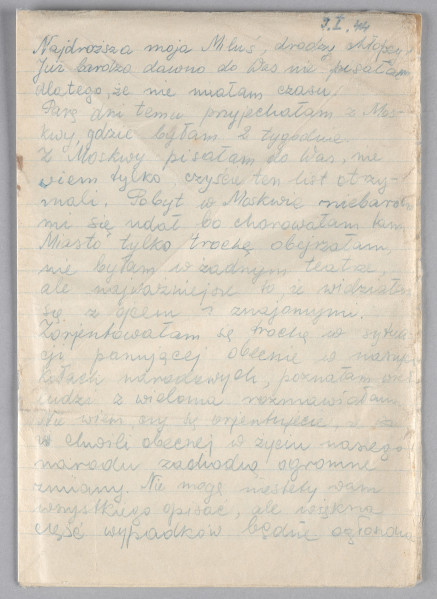 9.I.44
Najdroższa moja Miluś, drodzy chłopcy!
Już bardzo dawno do Was nie pisałam
dlatego, że nie miałam czasu.
Parę dni temu przyjechałam z Mos-
kwy, gdzie byłam 2 tygodnie.
Z Moskwy pisałam do Was, nie
wiem tylko, czyście ten list otrzy-
mali. Pobyt w Moskwie niebardzo
mi się udał bo chorowałam tam.
Miasto tylko trochę obejrzałam,
nie byłam w żadnym teatrze,
ale najważniejsze to, że widziałam
się z ojcem i znajomymi.
Zorjentowałam się trochę w sytua-
cji panującej obecnie w naszych
kołach narodowych, poznałam wielu
ludzi z wieloma rozmawiałam.
Nie wiem czy się orjentujecie, że
w chwili obecnej w życiu naszego
narodu zachodzą ogromne
zmiany. Nie mogę niestety Wam
wszystkiego opisać, ale większa
część wypadków będzie